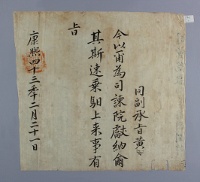 同副承旨黃
今以甫爲司諫院獻納俞
其斯速乘馹上來事有
旨
康熙四十三年二月二十一日